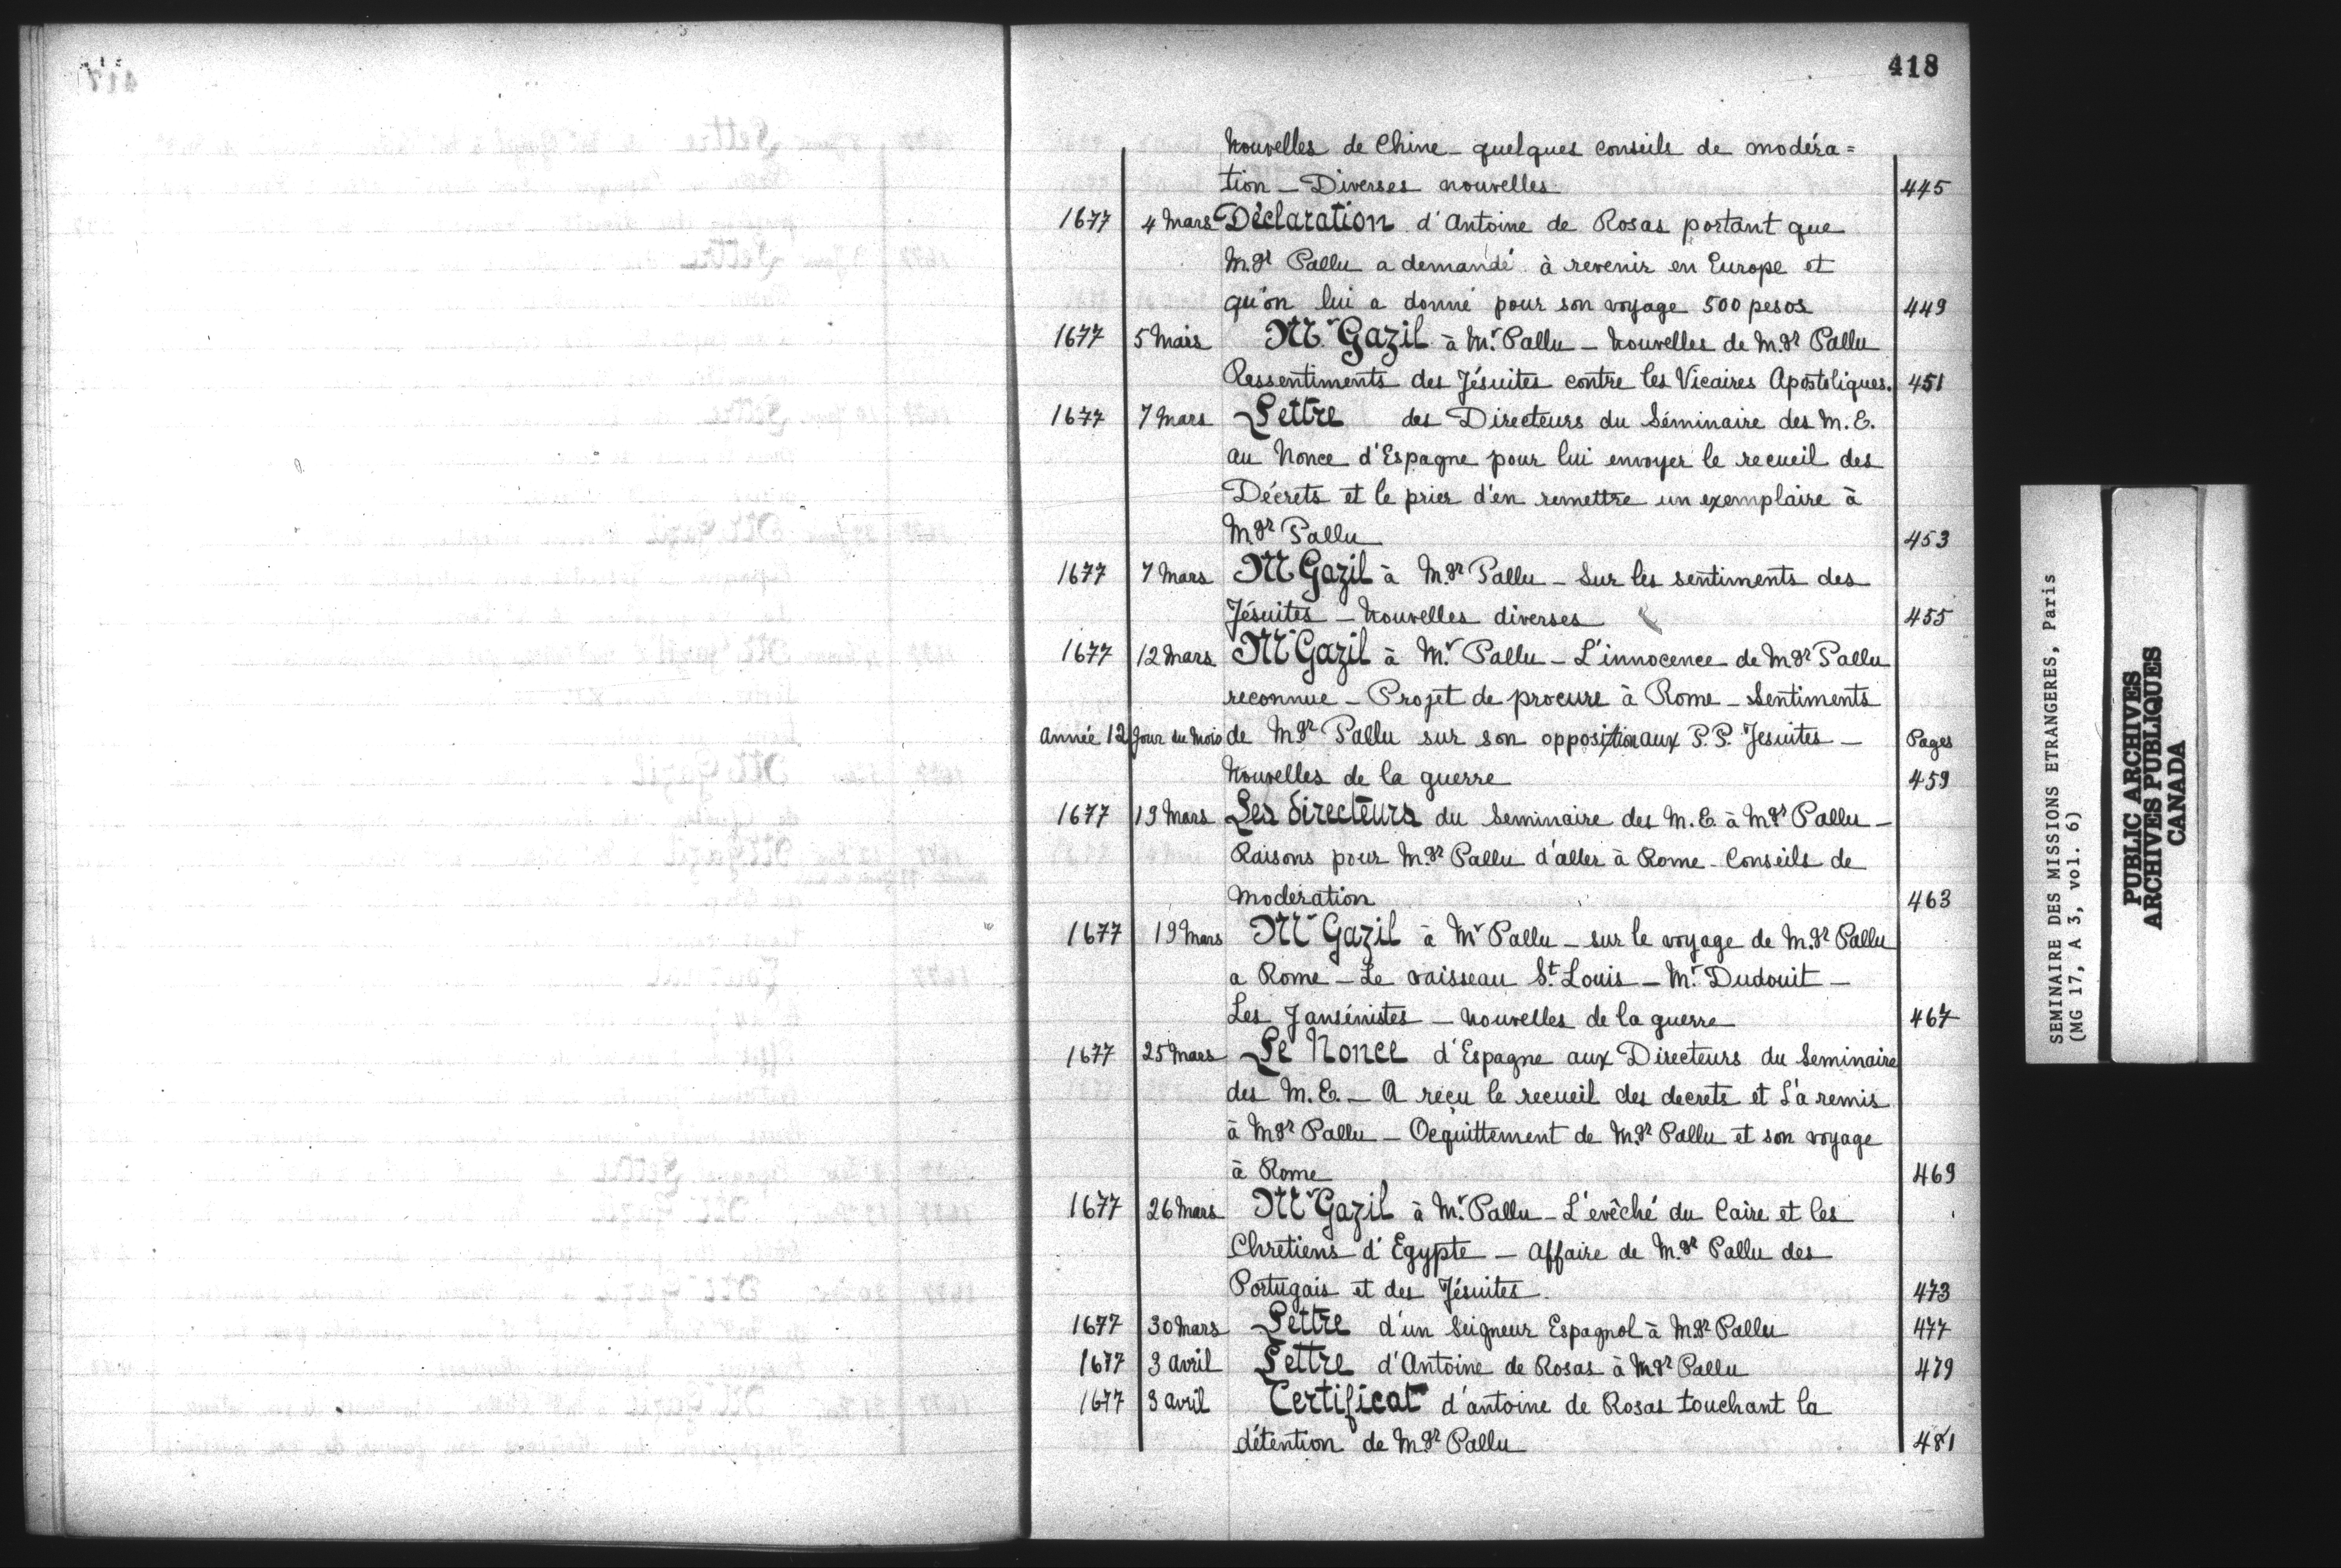 418
Nouvelles de Chine – quelques conseils de modéra=
tion – Diverses nouvelles 445
1677 4 Mars Déclaration d'Antoine de Rosas portant que
M.gr Pallu a demandé à revenir en Europe et
qu'on lui a donné pour son voyage 500 pesos 449
1677 5 Mars Mr Gazil à Mr. Pallu – Nouvelles de M.gr Pallu
Ressentiments des Jésuites contre les Vicaires Apostoliques. 451
1677 7 Mars Lettre des Directeurs du Séminaire des M. E.
au Nonce d'Espagne pour lui envoyer le recueil des
Décrets et le prier d'en remettre un exemplaire à
Mgr Pallu 453
1677 7 Mars Mr Gazil à M.gr Pallu – Sur les sentiments des
Jésuites – Nouvelles diverses 455
1677 12 Mars Mr Gazil à Mr. Pallu – L'innocence de Mgr Pallu
reconnue – Projet de procure à Rome – Sentiments
Année 12 Jour du Mois de Mgr Pallu sur son opposition aux P. P. Jesuites – Pages
Nouvelles de la guerre 459
1677 19 Mars Les Directeurs du Seminaire des M. E. à Mgr Pallu –
Raisons pour Mgr Pallu d'aller à Rome – Conseils de
moderation 463
1677 19 Mars Mr Gazil à Mr Pallu – sur le voyage de M.gr Pallu
a Rome – Le vaisseau St. Louis – Mr. Dudouit –
Les Jansénistes – Nouvelles de la guerre 467
1677 25 Mars Le Nonce d'Espagne aux Directeurs du Seminaire
des M. E. – A reçu le recueil des decrets et l'a remis
à Mgr Pallu – Acquittement de M.gr Pallu et son voyage
à Rome 469
1677 26 Mars Mr Gazil à Mr. Pallu – L'evêché du Caire et les
Chretiens d'Egypte – Affaire de M.gr Pallu des
Portugais et des Jésuites. 473
1677 30 Mars Lettre d'un Seigneur Espagnol à Mgr Pallu 477
1677 3 Avril Lettre d'Antoine de Rosas à Mgr Pallu 479
1677 3 Avril Certificat d'Antoine de Rosas touchant la
détention de Mgr Pallu 481
SEMINAIRE DES MISSIONS ETRANGERES, Paris
(MG 17, A 3, vol. 6)
PUBLIC ARCHIVES
ARCHIVES PUBLIQUES
CANADA